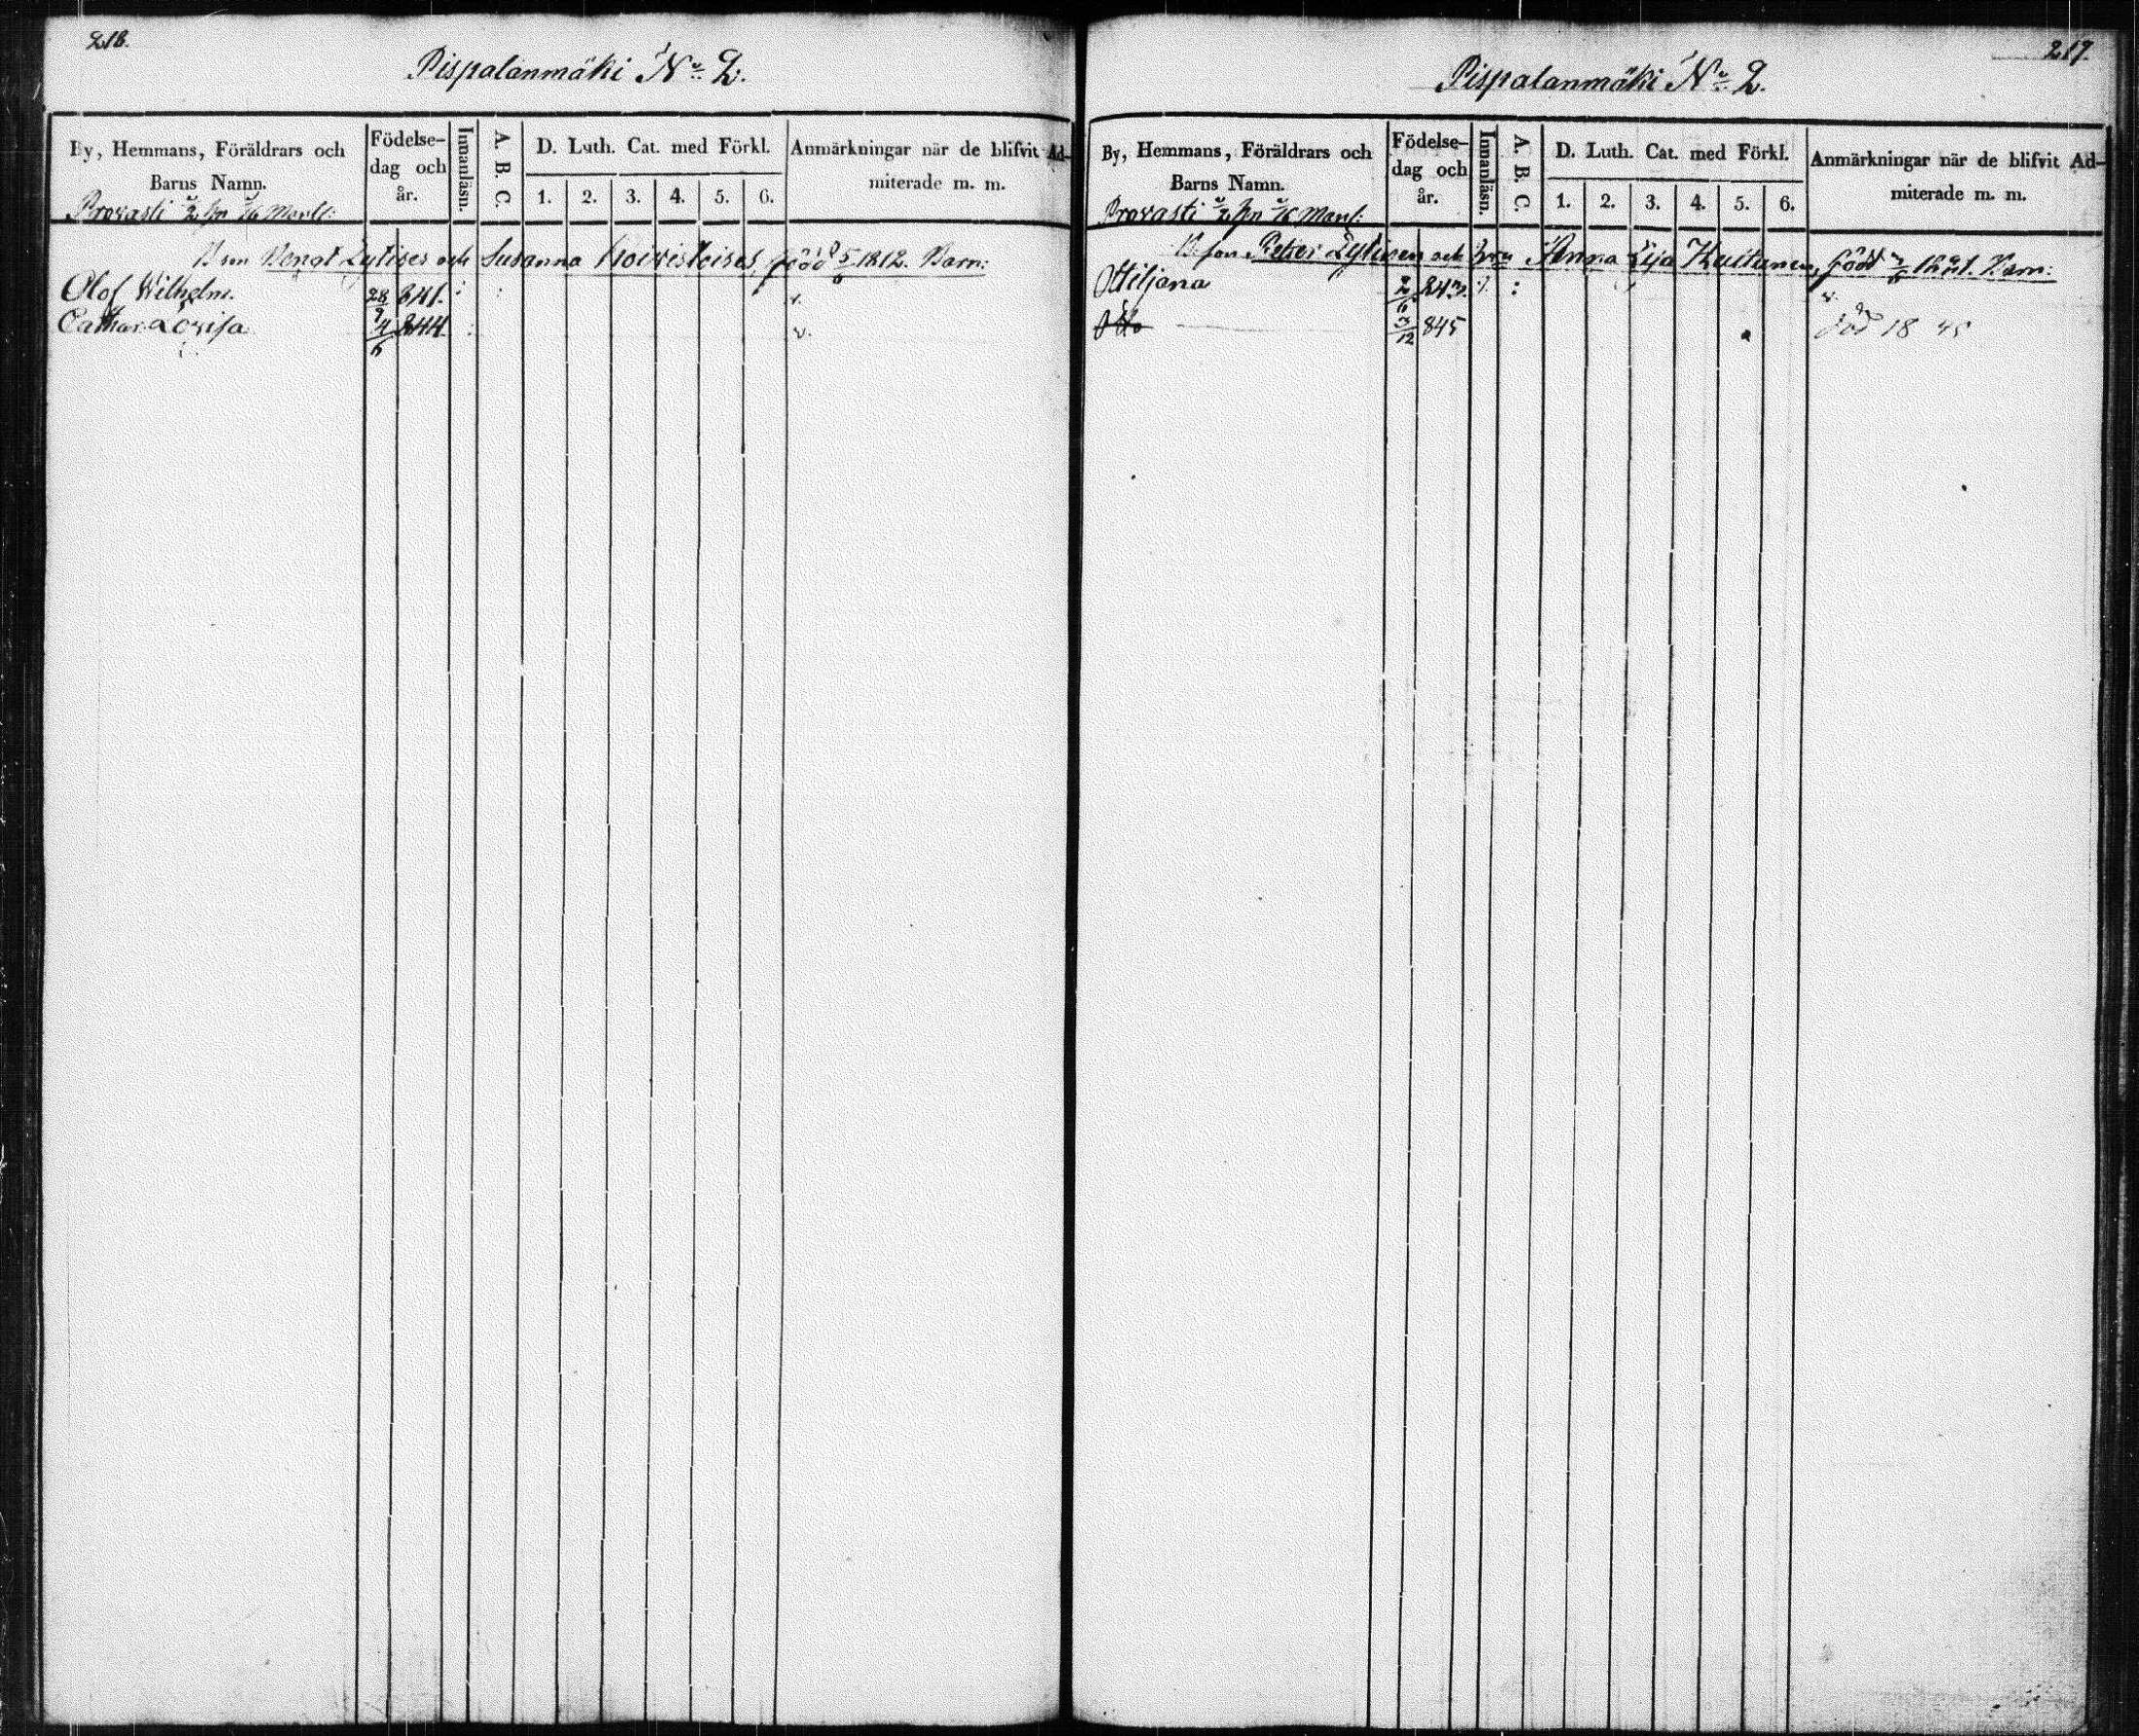 218.
Pispalanmäki No 2.
By, Hemmans, Föräldrars och Barns Namn.
Födelse-dag och år.
Innanläsn.
A. B. C.
D. Luth. Cat. med Förkl.
1. 2. 3. 4. 5. 6.
Anmärkningar när de blifvit Ad-miterade m. m.
Provasti 1/2 1/16 Mantl:
Bengt Lytises och Susanna Koivistoises, född 5/6 1812. Barn:
Olof Wilhelm. 28/9 841. : : v.
Cathar: Lovisa 4/6 844. : v.
219.
Pispalanmäki No 2.
By, Hemmans, Föräldrars och Barns Namn.
Födelse-dag och år.
Innanläsn.
A. B. C.
D. Luth. Cat. med Förkl.
1. 2. 3. 4. 5. 6.
Anmärkningar när de blifvit Ad-miterade m. m.
Provasti 1/2 1/16 Mant:
B. son Petter Lytisen och Anna Lisa Kultanen, född Barn:
Ottiljana 2/6 843. : v.
Otto 3/12 845 död 18 45